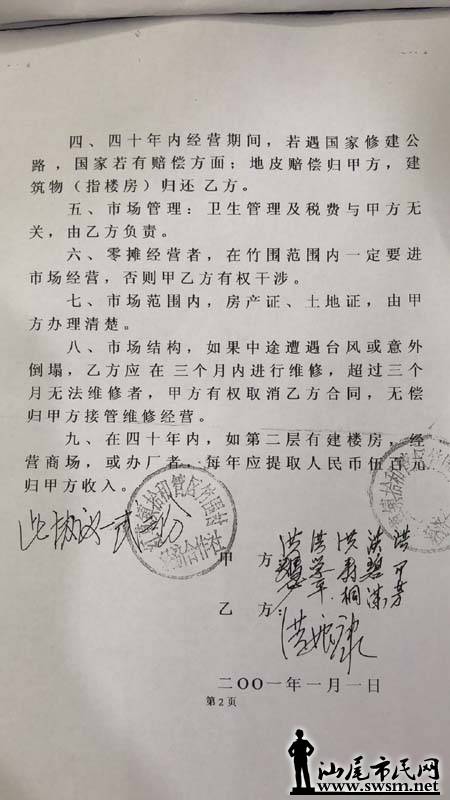 四、四十年内经营期间，若遇国家修建公
路，国家若有赔偿方面；地皮赔偿归甲方，建
筑物（指楼房）归还乙方。
五、市场管理：卫生管理及税费与甲方无
关，由乙方负责。
六、零摊经营者，在竹围范围内一定要进
市场经营，否则甲乙方有权干涉。
七、市场范围内，房产证、土地证，由甲
方办理清楚。
八、市场结构，如果中途遭遇台风或意外
倒塌，乙方应在三个月内进行维修，超过三个
月无法维修者，甲方有权取消乙方合同，无偿
归甲方接管维修经营。
九、在四十年内，如第二层有建楼房，经
营商场，或办厂者，每年应提取人民币伍百元
归甲方收入。
此协议一式 份
管区竹围村
经济合作社
甲方
洪 洪 洪 洪 洪
乙方：
二〇〇一年一月一日
第2页
汕尾市民网
www.swsm.net